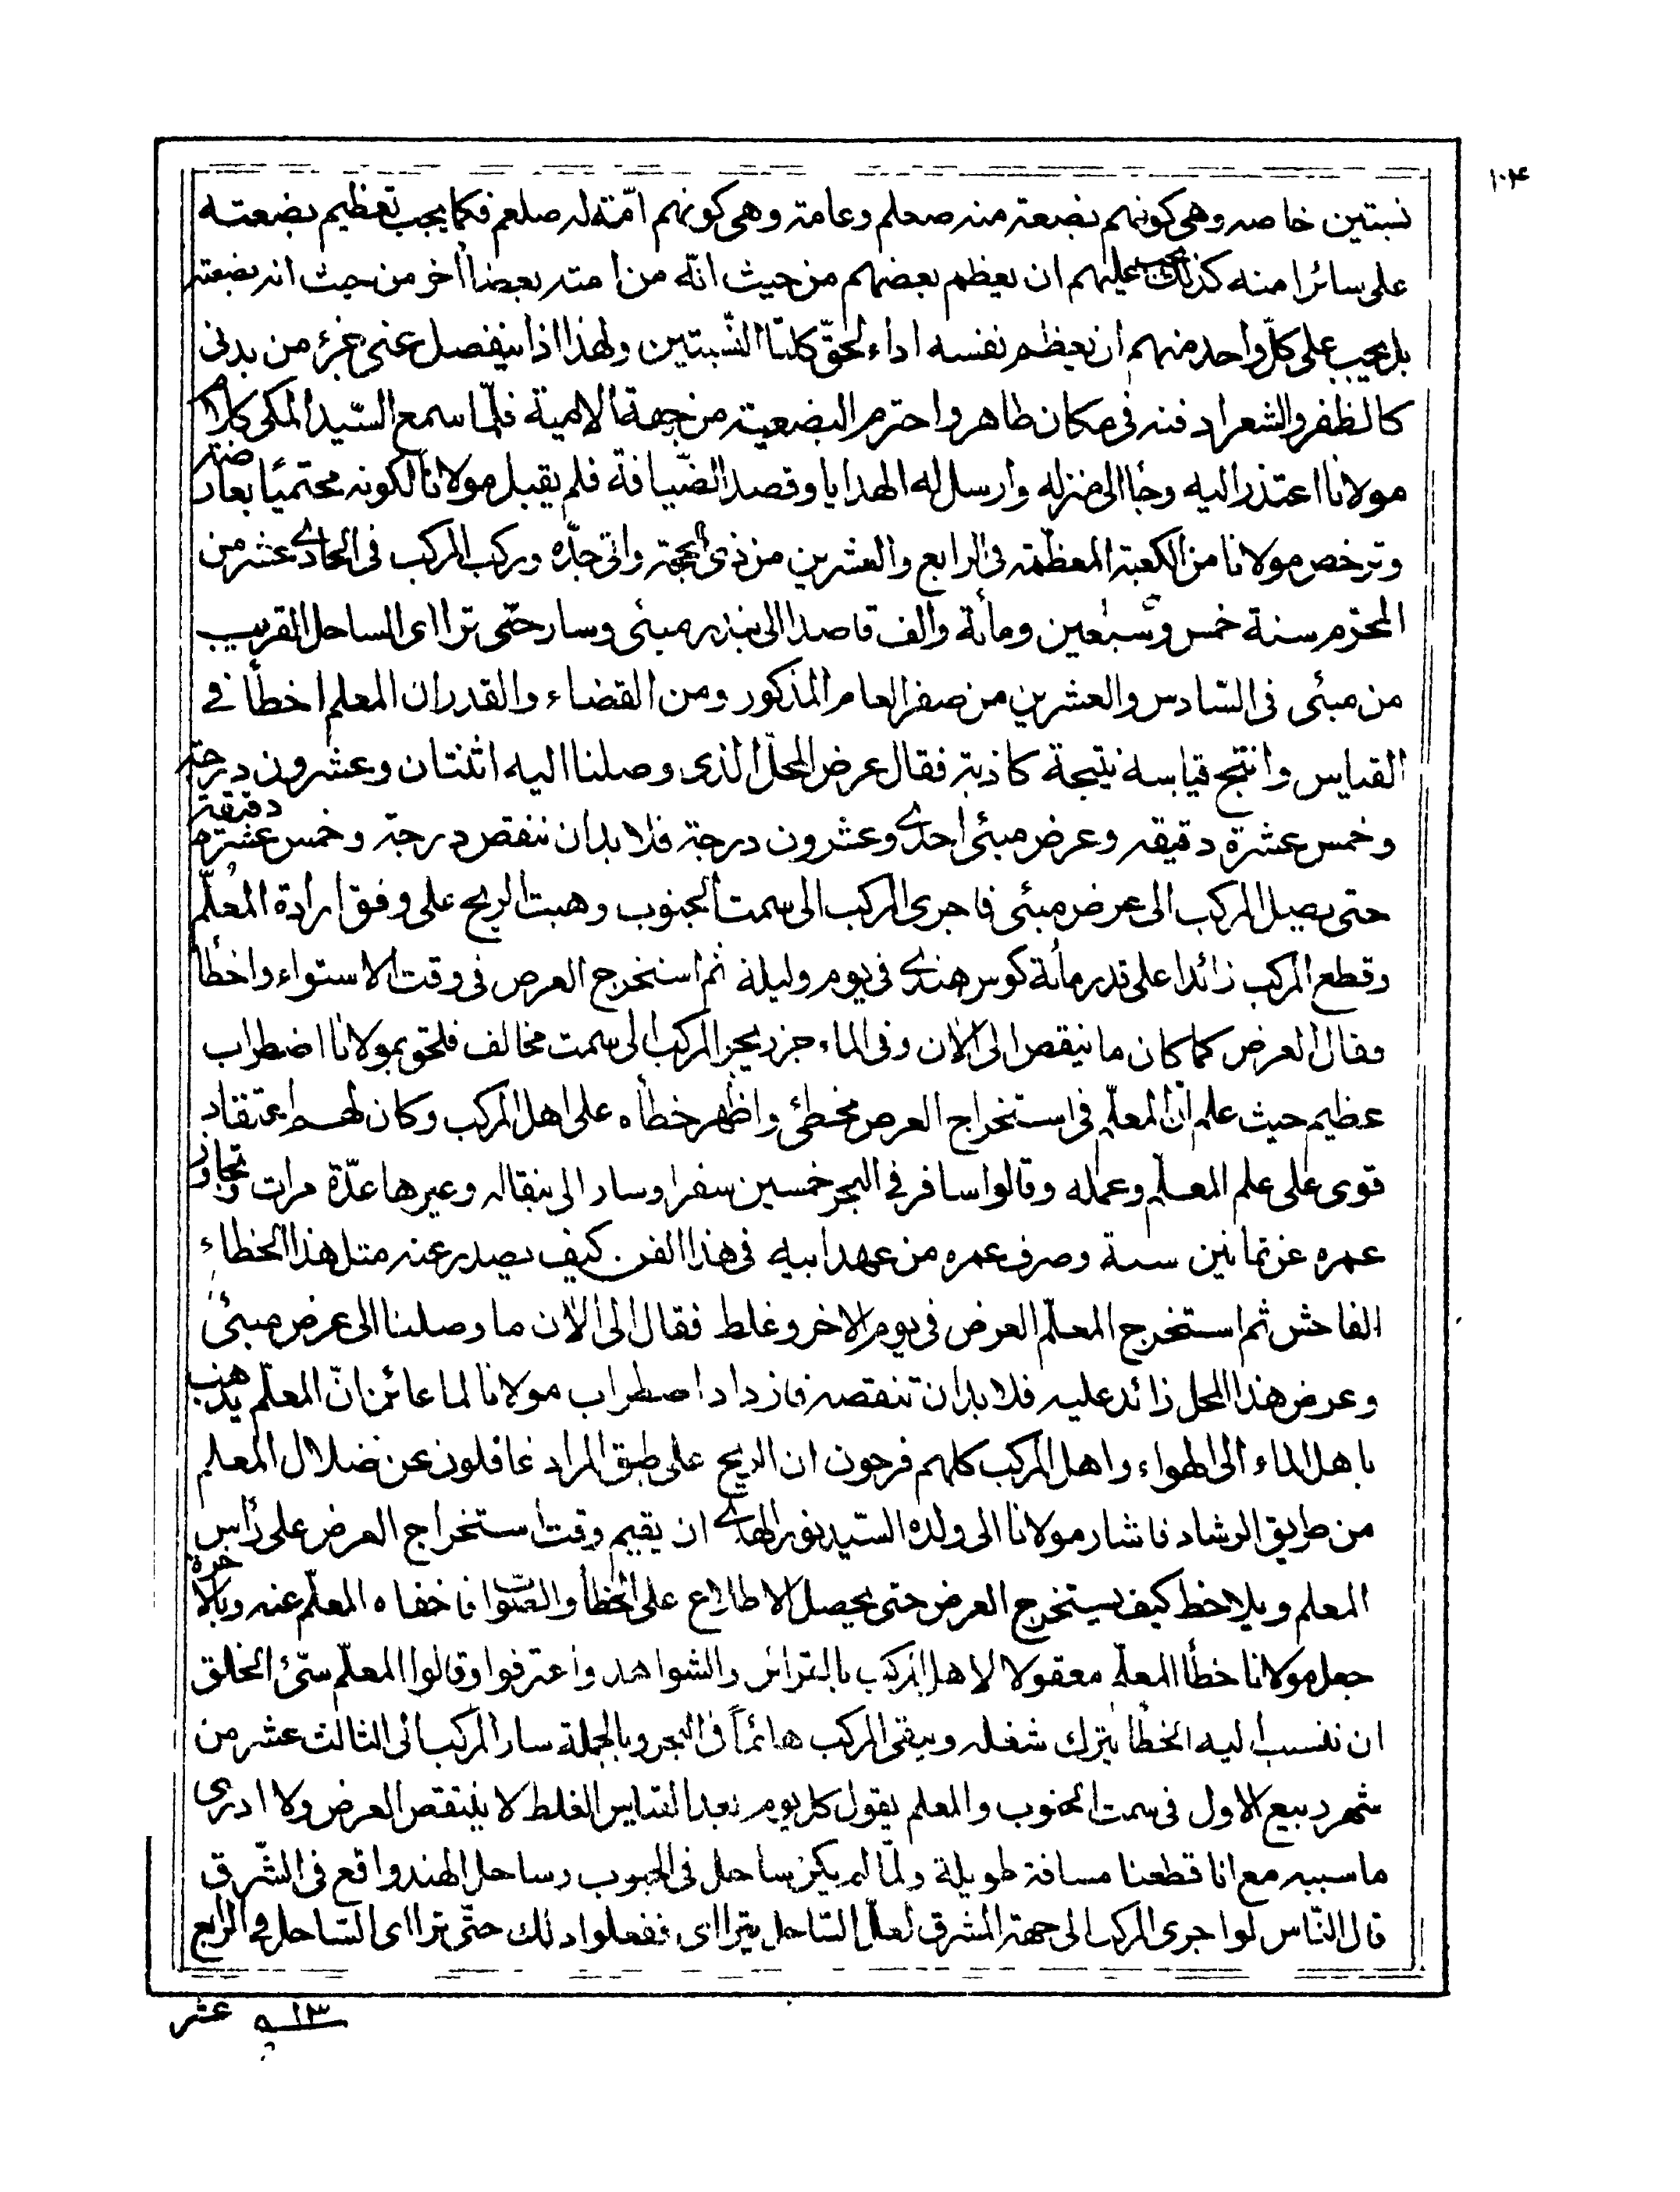 ١٠٤
نسبتين خاصه وهى كونهم بضعته منه صعلم وعامة وهى كونهم امّته له صلعم فكما يجب تعظيم بضعته
على سائر امته كذلك يجب عليهم ان يعظم بعضهم من حيث انّه من امته بعضا أخر من حيث انه بضعته
بل يجب على كلّ واحد منهم ان يعظم نفسه اداء لحقّ كلتا النّسبتين ولهذا اذا ينفصل عنى جزء من بدنى
كالظفر والشعر ادفنه فى مكان طاهر واحترم البضعية من جهة الامية فلمّا سمع السّيد المكى كلام
مولانا اعتذر اليه وجاا الى منزله وارسل له الهدايا وقصد الضّيافة فلم يقبل مولانا لكونه محتميًا بعارضة
وترخص مولانا من الكعبة المعظّمه فى الرابع والعشرين من ذى الحجة واتى جدّه وركب المركب فى الحادى عشر من
المحرّم سنة خمس وسبعين ومائة والف قاصدا الى بندر مبئى وسار حتّى تراای الساحل القريب
من مبئى فى السّادس والعشرين من صفر العام المذكور ومن القضاء والقدر ان المعلم اخطأ فى
القياس وانتج قياسه نتيجة كاذبة فقال عرض المحلّ الذى وصلنا اليه اثنتان وعشرون درجة
وخمس عشرة دقيقه وعرض مبئى احدى وعشرون درجة فلا بد ان ننقص درجة وخمس عشرة دقيقة
حتى يصيل المركب الى عرض مبئى فاجرى المركب الى سمت الجنوب وهبت الريح على وفق ارادة المعلّم
وقطع المركب زائدا على قدر مأئة كوس هندى فى يوم وليلة ثم استخرج العرض فى وقت الاستواء واخطأ
فقال العرض كما كان ما نيقص الى الأن وفى الماء جزر يجر المركب الى سمت مخالف فلحق بمولانا اضطراب
عظيم حيث علم انّ المعلّم فى استخراج العرض مخطئ واظهر خطأه على اهل المركب وكان لهم اعتقاد
قوى على علم المعلّم وعمله وقالوا سافر فى البحر خمسين سفرا وسار الى بنقاله وغيرها عدّة مرات وتجاوز
عمره عن ثمانين سنة وصرف عمره من عهد ابيه فى هذا الفن كيف يصدر عنه مثل هذا الخطاء
الفاحش ثم استخرج المعلّم العرض فى يوم الاخر وغلط فقال الى الأن ما وصلنا الى عرض مبئى
وعرض هذا المحل زائد عليه فلا بد ان تنقصه فازداد اضطراب مولانا لما عائن انّ المعلّم يذهب
باهل الماء الى الهواء واهل المركب كلهم فرحون ان الريح على طبق المراد غافلون عن ضلال المعلم
من طريق الرشاد فاشار مولانا الى ولده السّيد نور الهدى ان يقيم وقت استخراج العرض على رأس
المعلم ويلاحظ كيف يستخرج العرض حتى يحصل الاطلاع على الخطأ والصّواب فاخفاه المعلّم عنه وبالاخرة
جعل مولانا خطأ المعلّم معقولا لاهل المركب بالقرائن والشواهد واعترفوا وقالوا المعلّم سيّئ الخلق
ان ننسب اليه الخطأ يترك شغله ويبقى المركب هائماً فى البحر وبالجملة سار المركب الى الثالث عشر من
شهر ربيع الاول فى سمت الجنوب والمعلم يقول كل يوم بعد القياس الغلط لا ينتقص العرض ولا ادرى
ما سببه مع انا قطعنا مسافة طويلة ولمّا لم يكن ساحل فى الجنوب وساحل الهند واقع فى الشّرق
قال النّاس لو اجرى المركب الى جهة المشرق لعلّ السّاحل يتراای ففعلوا ذلك حتّى تراای السّاحل فى الرابع
عشر